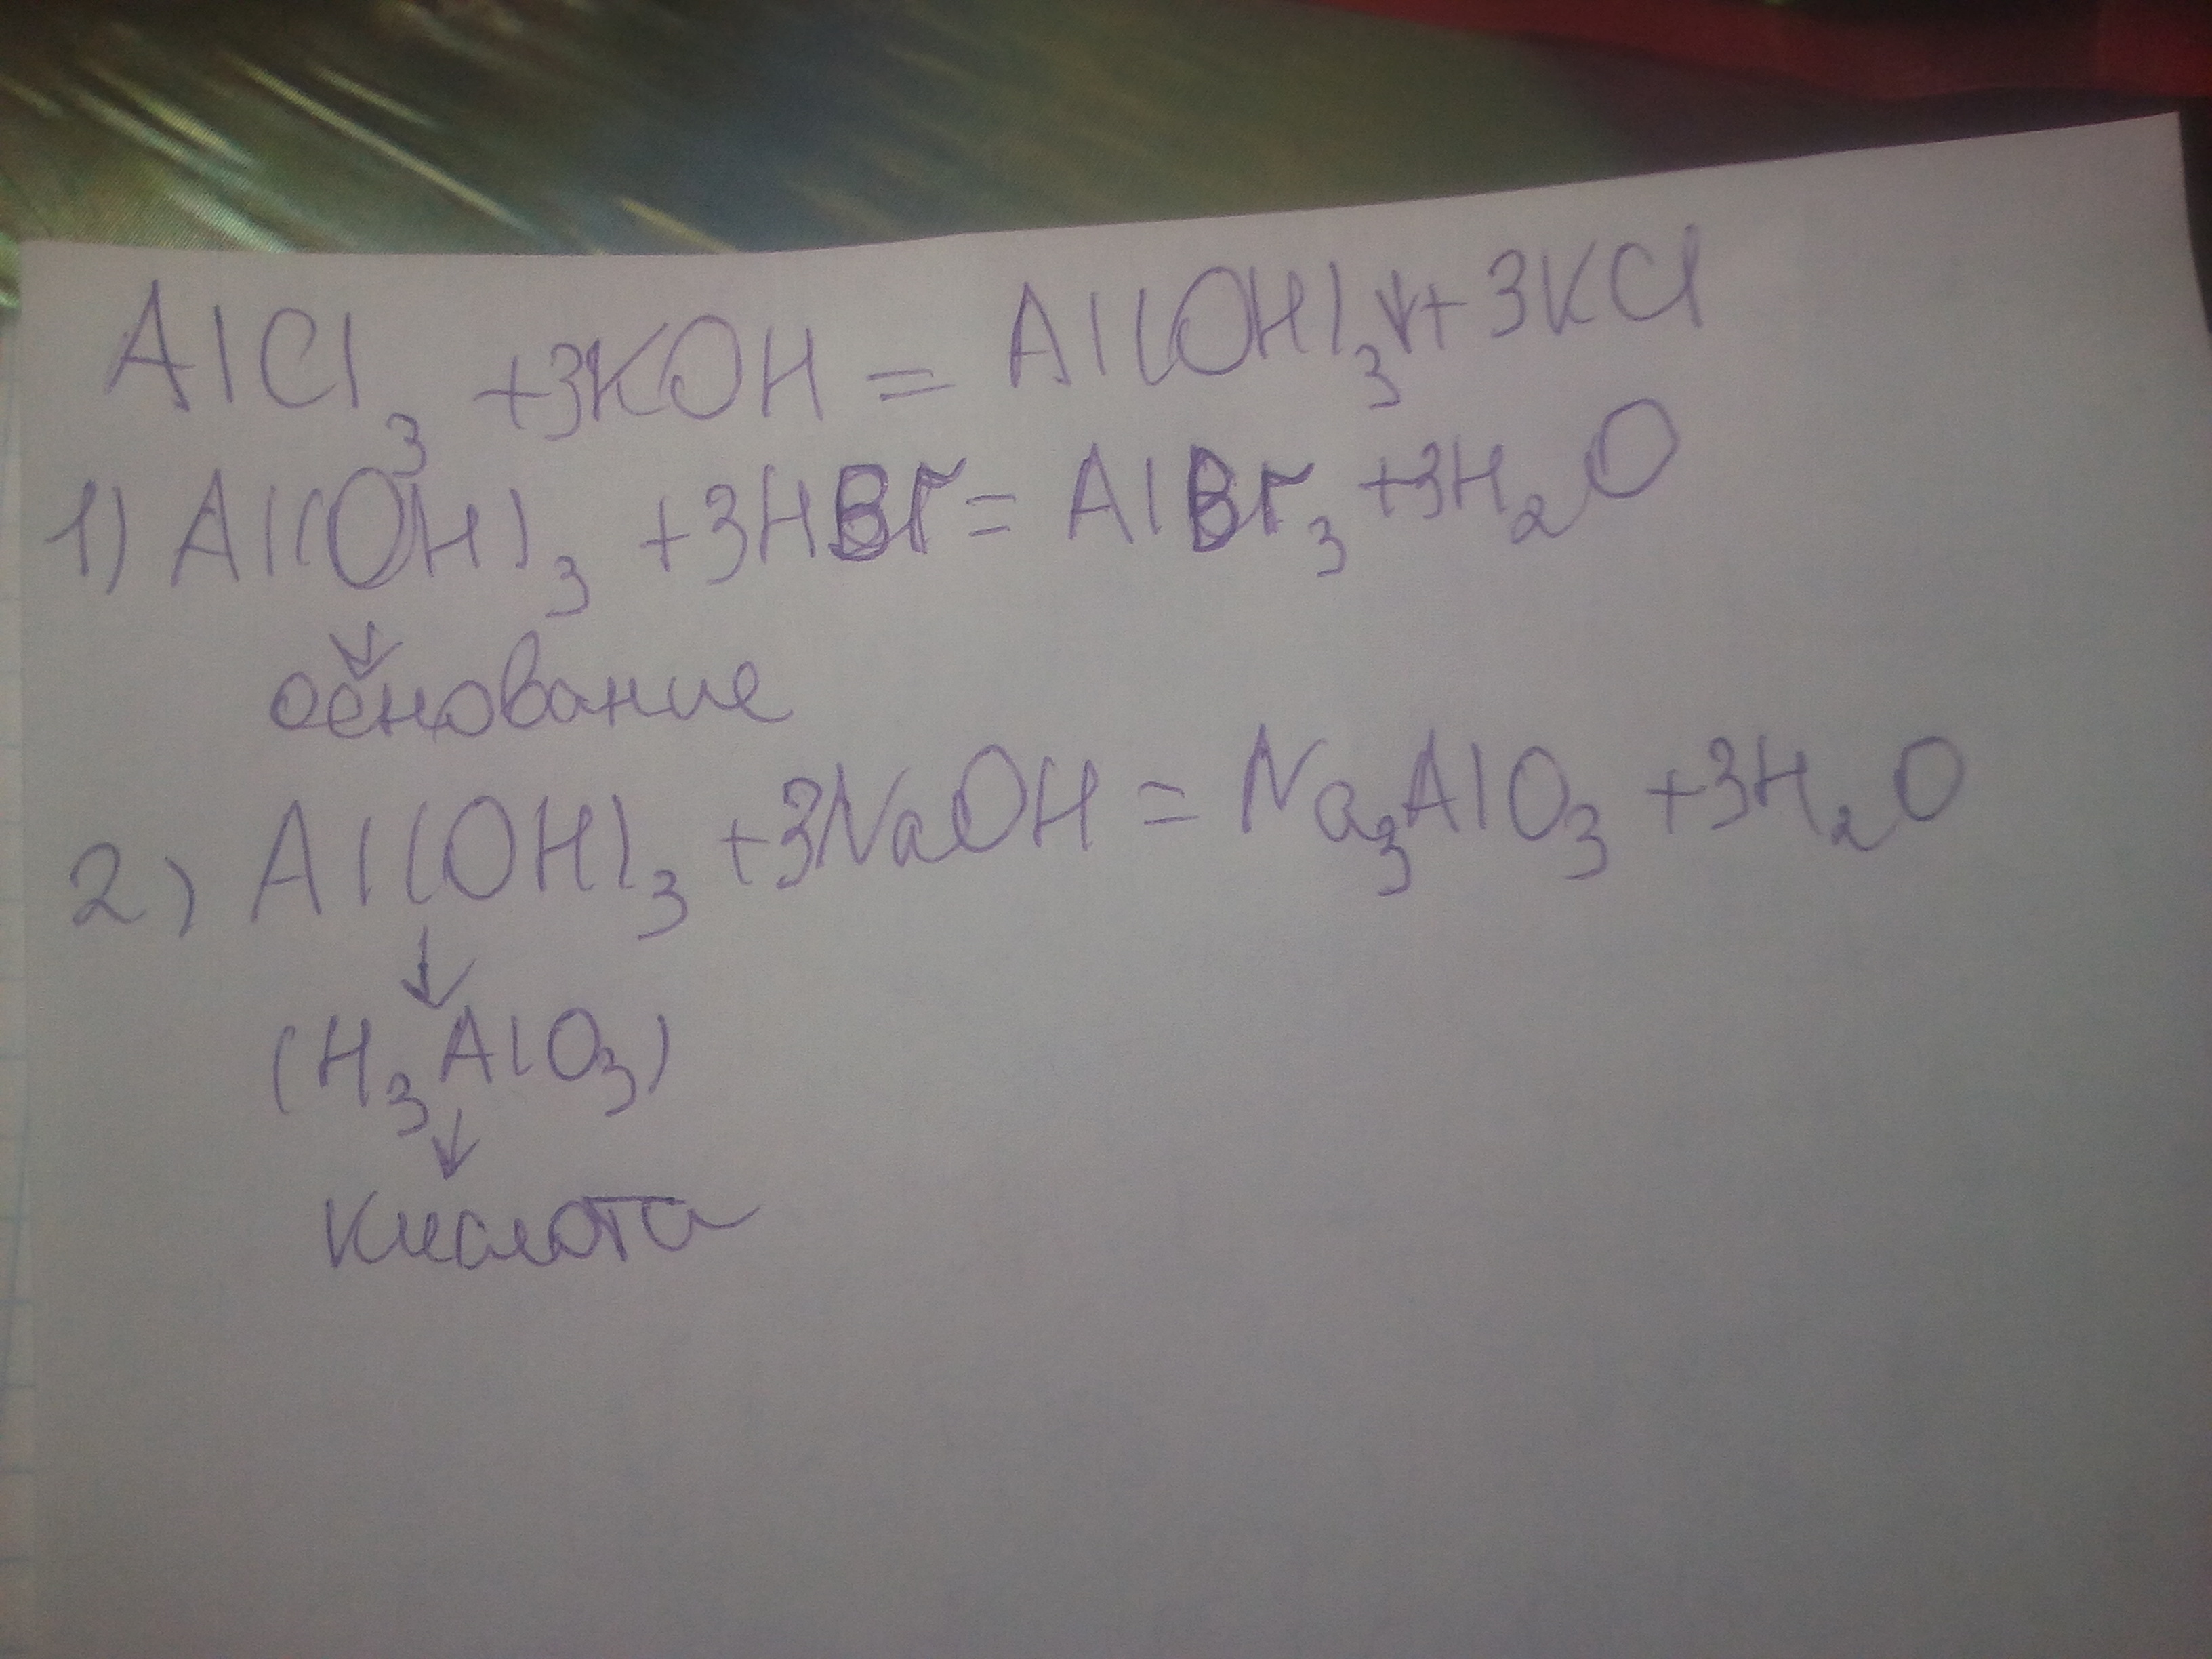 AlCl₃ +3KOH = Al(OH)₃↓+ 3KCl
1) Al(OH)₃ +3HBr= AlBr₃ +3H₂O
↓
основание
2) Al(OH)₃ +3NaOH = Na₃AlO₃ +3H₂O
↓
(H₃AlO₃)
↓
кислота